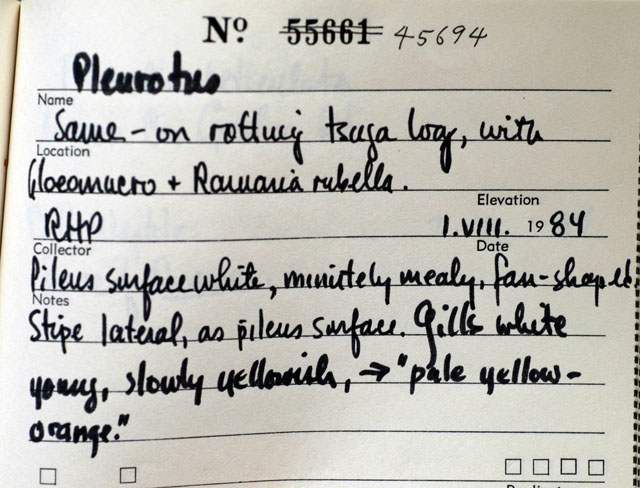 Nº 55661 45694
Pleurotus
Name
Same - on rotting tsuga log, with
Location
Gloeomucro + Ramaria rubella.
Elevation
RHP 1.VIII. 1984
Collector Date
Pileus surface white, minutely mealy, fan-shaped
Notes
Stipe lateral, as pileus surface. Gills white
young, slowly yellowish, → "pale yellow-
orange."